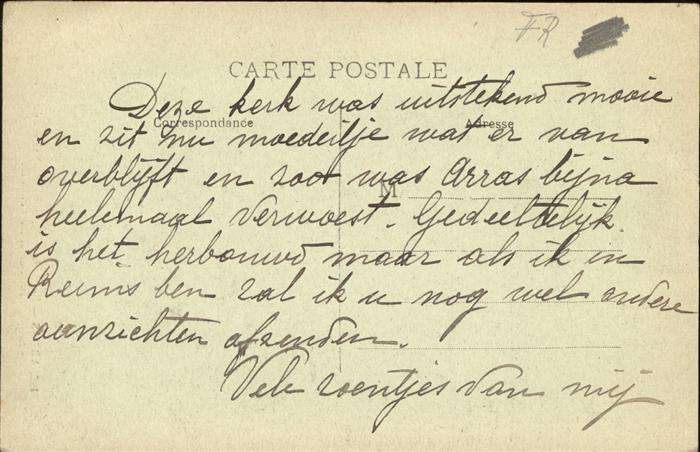 FR
CARTE POSTALE
Correspondance
Adresse
M
Deze kerk was uitstekend mooie
en zit nu moedeilje wat er van
overblijft en zoo was Arras bijna
heelemaal verwoest. Gedeeltelijk
is het herbouwd maar als ik in
Reims ben zal ik u nog wel andere
aanzichten afzenden.
Vele zoentjes van mij